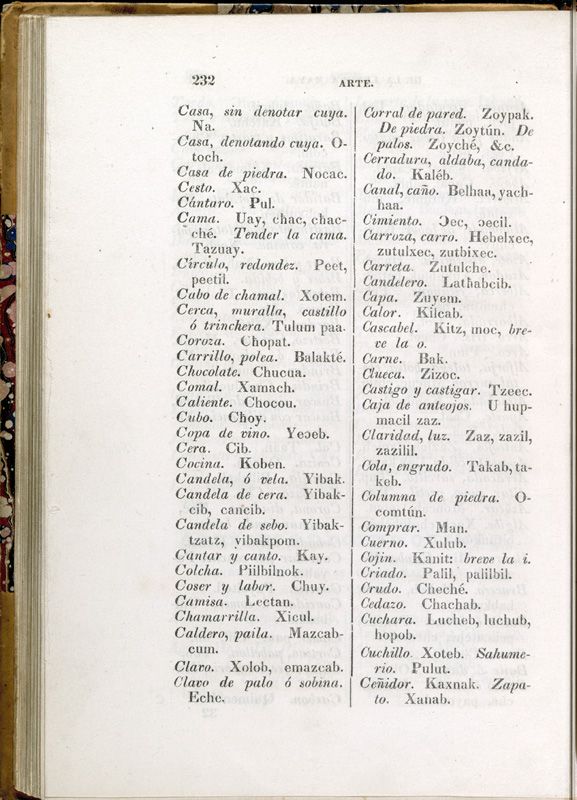 232
ARTE.
Casa, sin denotar cuya.
Na.
Casa, denotando cuya. O-
toch.
Casa de piedra. Nocac.
Cesto. Xac.
Cántaro. Pul.
Cama. Uay, chac, chac-
ché. Tender la cama.
Tazuay.
Círculo, redondez. Peet,
peetil.
Cabo de chamal. Xotem.
Cerca, muralla, castillo
ó trinchera. Tulum paa.
Coroza. Chopat.
Carrillo, polea. Balakté.
Chocolate. Chucua.
Comal. Xamach.
Caliente. Chocou.
Cubo. Choy.
Copa de vino. Yeɔeb.
Cera. Cib.
Cocina. Koben.
Candela, ó vela. Yibak.
Candela de cera. Yibak-
cib, cancib.
Candela de sebo. Yibak-
tzatz, yibakpom.
Cantar y canto. Kay.
Colcha. Piilbilnok.
Coser y labor. Chuy.
Camisa. Lectan.
Chamarrilla. Xicul.
Caldero, paila. Mazcab-
cum.
Clavo. Xolob, emazcab.
Clavo de palo ó sobina.
Eche.
Corral de pared. Zoypak.
De piedra. Zoytún. De
palos. Zoyché, &c.
Cerradura, aldaba, canda-
do. Kaléb.
Canal, caño. Belhaa, yach-
haa.
Cimiento. Ɔec, ɔecil.
Carroza, carro. Hebelxec,
zutulxec, zutbixec.
Carreta. Zutulche.
Candelero. Lathabcib.
Capa. Zuyem.
Calor. Kilcab.
Cascabel. Kitz, moc, bre-
ve la o.
Carne. Bak.
Clueca. Zizoc.
Castigo y castigar. Tzeec.
Caja de anteojos. U hup-
macil zaz.
Claridad, luz. Zaz, zazil,
zazilil.
Cola, engrudo. Takab, ta-
keb.
Columna de piedra. O-
comtún.
Comprar. Man.
Cuerno. Xulub.
Cojin. Kanit: breve la i.
Criado. Palil, palilbil.
Crudo. Cheché.
Cedazo. Chachab.
Cuchara. Lucheb, luchub,
hopob.
Cuchillo. Xoteb. Sahume-
rio. Pulut.
Ceñidor. Kaxnak. Zapa-
to. Xanab.